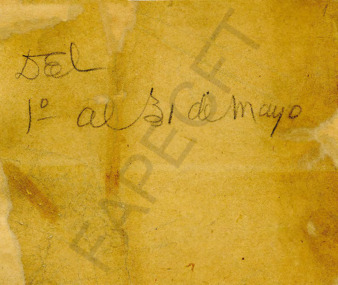 Del
1º al 31 de Mayo
FAPECFT